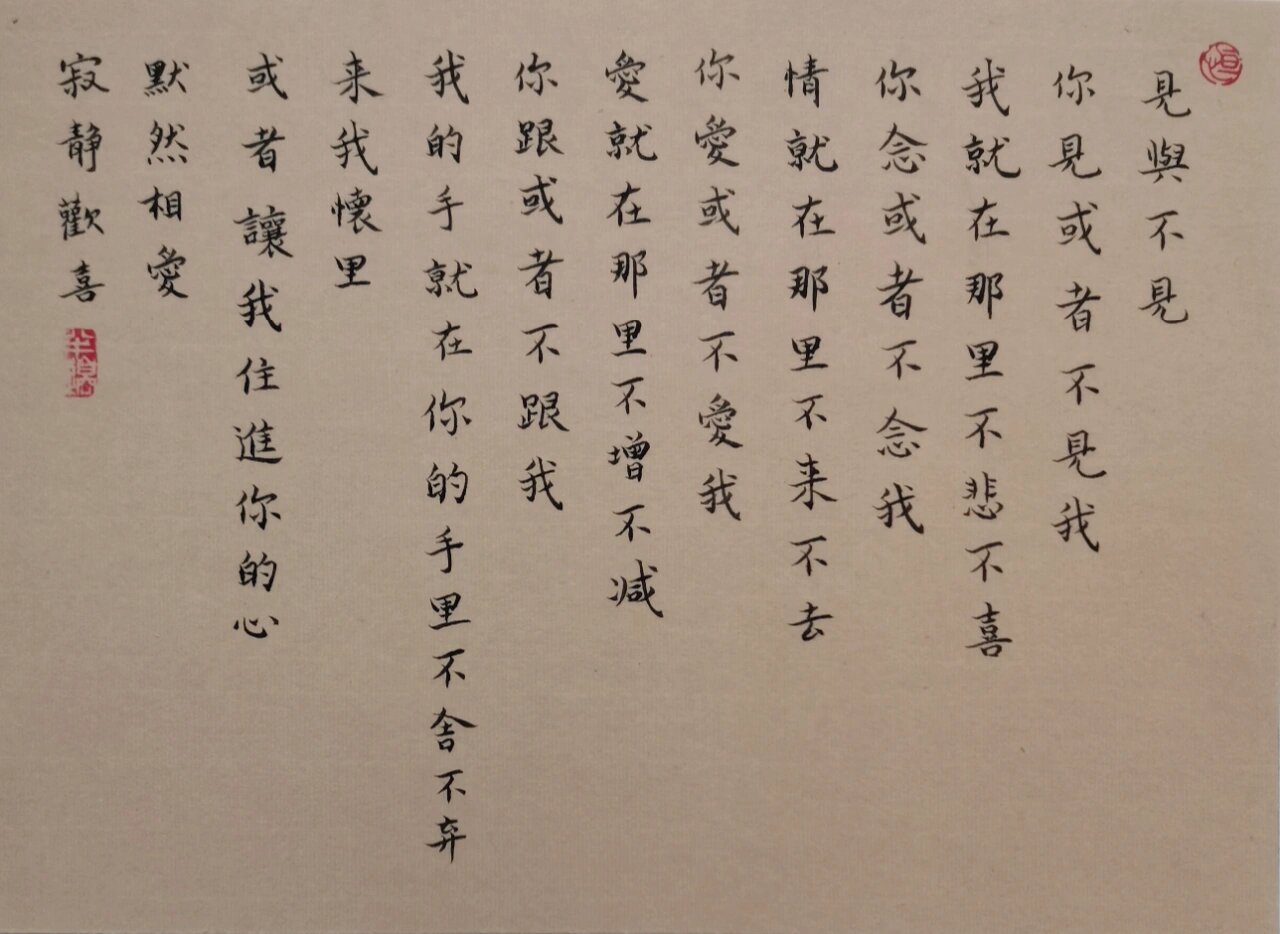 見與不見
你見或者不見我
我就在那里不悲不喜
你念或者不念我
情就在那里不来不去
你愛或者不愛我
愛就在那里不增不减
你跟或者不跟我
我的手就在你的手里不舍不弃
来我懷里
或者讓我住進你的心
默然相愛
寂静歡喜